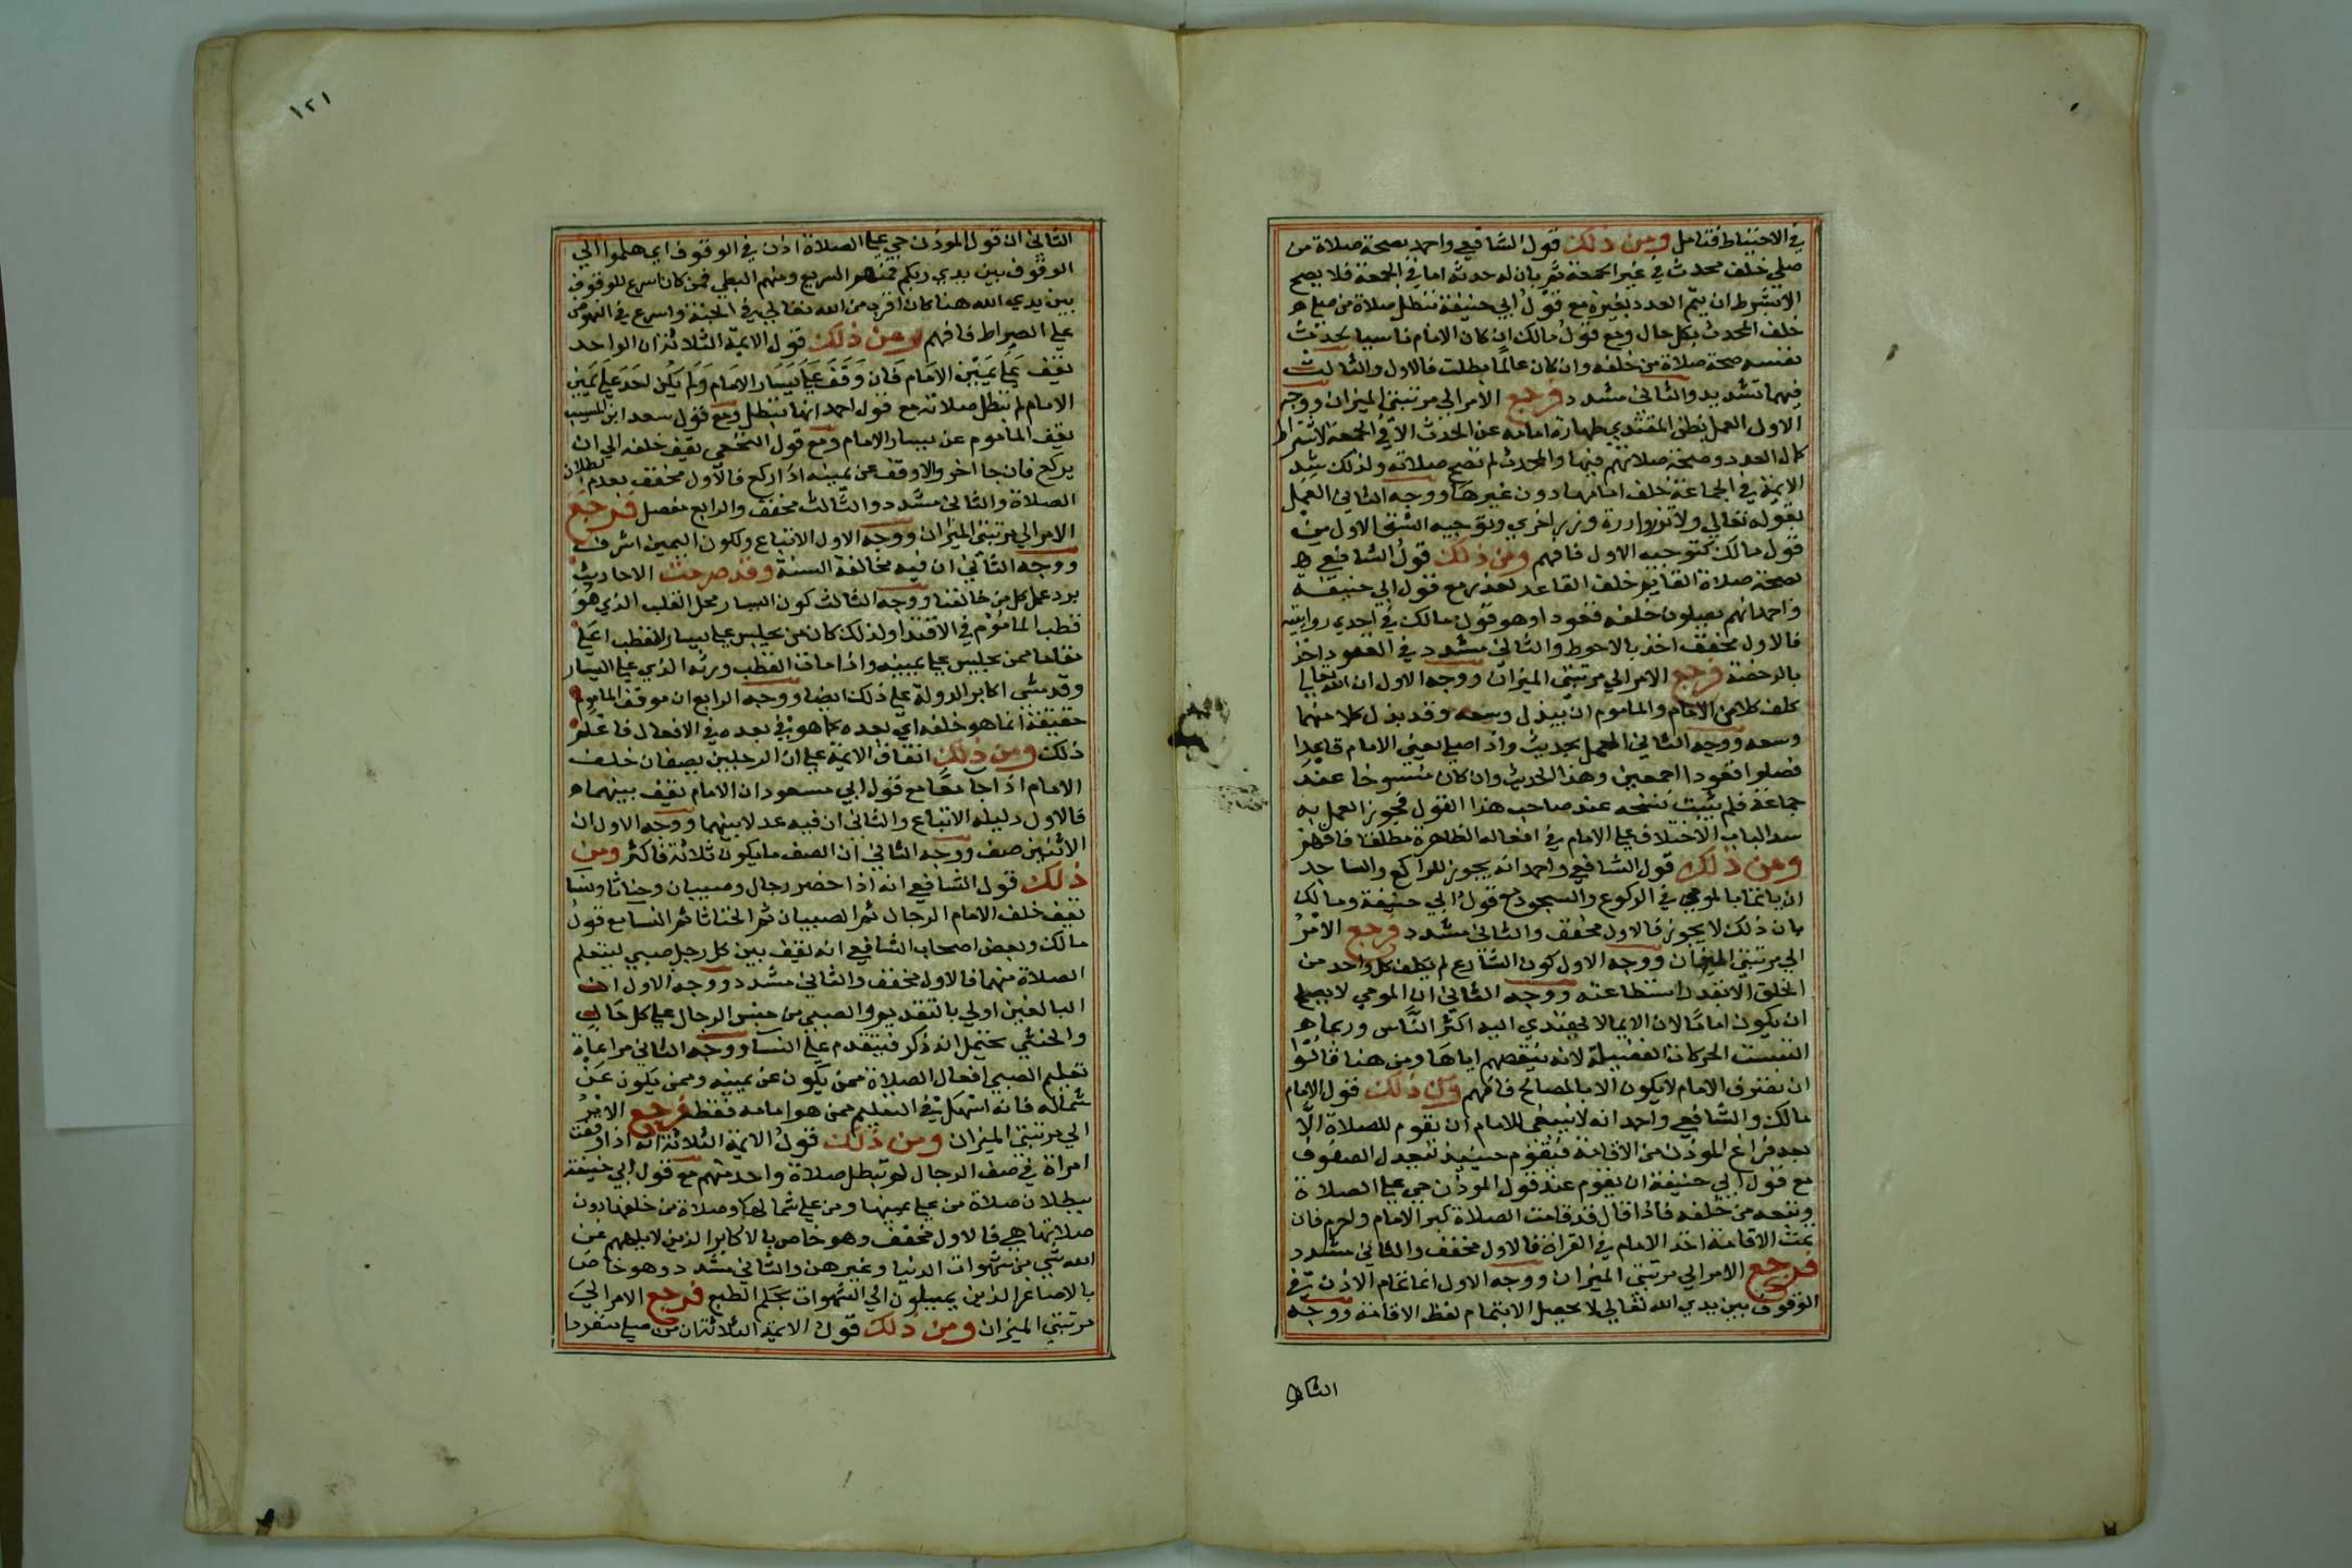 في الاحتياط فتامل ومن ذلك قول الشافعي واحمد بصحة صلاة من
صلي خلف محدث في غير الجمعة ثم بان له حدثه اما في الجمعة فلا يصح
الا بشرط ان يتم العدد بغيره مع قول ابي حنيفة تبطل صلاة من صلى
خلف المحدث بكل حال ومع قول مالك ان كان الامام ناسيا لحدث
نفسه صحة صلاة من خلفه وان كان عالما بطلت فالاول والثالث
فيهما تشديد والثاني مشدد فرجع الامر الي مرتبتي الميزان ووجه
الاول العمل بظن المقتدي طهارة امامه عن الحدث الا في الجمعة لاشتراط
كمال العدد وصحة صلاتهم فيها والمحدث لم تصح صلاته ولذلك شدد
الايمة في الجماعة خلف امامها دون غيرها ووجه الثاني العمل
بقوله تعالي ولا تزر وازرة وزر اخري وتوجيه الشق الاول من
قول مالك كتوجيه الاول فافهم ومن ذلك قول الشافعي
بصحة صلاة القايم خلف القاعد لعذر مع قول ابي حنيفة
واحمد انهم يصلون خلفه قعودا وهو قول مالك في احدي روايتيه
فالاول مخفف اخذ بالاحوط والثاني مشدد في القعود اخذ
بالرخصة فرجع الامر الي مرتبتي الميزان ووجه الاول ان الله تعالي
كلف كلا من الامام والماموم ان يبذل وسعه وقد بذل كلا منهما
وسعه ووجه الثاني العمل بحديث واذا صلي يعني الامام قاعدا
فصلوا قعودا اجمعين وهذا الحديث وان كان منسوخا عند
جماعة فلم يثبت نسخه عند صاحب هذا القول فجوز العمل به
سد الباب الاختلاف علي الامام في افعاله الظاهرة مطلقا فافهم
ومن ذلك قول الشافعي واحمد انه يجوز للراكع والساجد
ان ياتما بالمومي في الركوع والسجود مع قول ابي حنيفة ومالك
بان ذلك لا يجوز فالاول مخفف والثاني مشدد فرجع الامر
الي مرتبتي الميزان ووجه الاول كون الشارع لم يكلف كل واحد من
الخلق الا بقدر استطاعته ووجه الثاني ان المومي لا يصلح
ان يكون اماما لان الايما لا يهتدي اليه اكثر الناس وربما
التبست الحركات الفضيلة لانه ينقصهم اياها ومن هنا قالوا
ان تفترق الامام لا يكون الا بالمصالح فافهم ومن ذلك قول الامام
مالك والشافعي واحمد انه لا ينبغي للامام ان يقوم للصلاة الا
بعد فراغ الموذن من الاقامة فيقوم حينيذ لتعدل الصفوف
مع قول ابي حنيفة ان يقوم عند قول الموذن حي علي الصلاة
ويتبعه من خلفه فاذا قال قد قامت الصلاة كبر الامام واحرم فان
تمت الاقامة اخذ الامام في القراة فالاول مخفف والثاني مشدد
فرجع الامر الي مرتبتي الميزان ووجه الاول انما تمام الاذن في
الوقوف بين يدي الله تعالي لا يحصل الا بتمام لفظ الاقامة ووجه
الثاني
١٢١
الثاني ان قول الموذن حي علي الصلاة اذن في الوقوف اي هلموا الي
الوقوف بين يدي ربكم فمنهم السريع ومنهم البطي فمن كان اسرع للوقوف
بين يدي الله هنا كان اقرب من الله تعالي في الجنة واسرع في النهوض
علي الصراط فافهم ومن ذلك قول الايمة الثلاثة ان الواحد
يقف علي يمين الامام فان وقف علي يسار الامام ولم يكن احد علي يمين
الامام لم تبطل صلاته مع قول احمد انها تبطل ومع قول سعد ابن المسيب
يقف الماموم عن يسار الامام ومع قول النخعي يقف خلفه الي ان
يركع فان جا اخر والا وقف عن يمينه اذا ركع فالاول مخفف بعدم بطلان
الصلاة والثاني مشدد والثالث مخفف والرابع مفصل فرجع
الامر الي مرتبتي الميزان ووجه الاول الاتباع ولكون اليمين اشرف
ووجه الثاني ان فيه مخالفة السنة وقد صرحت الاحاديث
برد عمل كل من خالفنا ووجه الثالث كون اليسار محل القلب الذي هو
قطب الماموم في الاقتدا ولذلك كان من يجلس علي يسار القطب اعلي
مقاما ممن يجلس علي يمينه واذا مات القطب ورثه الذي علي اليسار
وقد مشي اكابر الدولة علي ذلك ايضا ووجه الرابع ان موقف الماموم
حقيقة انما هو خلفه اي بعده كما هو في بعده في الافعال فاعلم
ذلك ومن ذلك اتفاق الايمة علي ان الرجلين يصفان خلف
الامام اذا جا معا مع قول ابي مسعود ان الامام يقف بينهما
فالاول دليله الاتباع والثاني ان فيه عدلا بينهما ووجه الاول ان
الاثنين صف ووجه الثاني ان الصف ما يكون ثلاثة فاكثر ومن
ذلك قول الشافعي انه اذا حضر رجال وصبيان وخناثا ونسا
يقف خلف الامام الرجال ثم الصبيان ثم الخناثا ثم النسا مع قول
مالك وبعض اصحاب الشافعي انه يقف بين كل رجل صبي ليتعلم
الصلاة منهما فالاول مخفف والثاني مشدد ووجه الاول ان
البالغين اولي بالتقديم والصبي من جنس الرجال علي كل حال
والخنثي يحتمل انه ذكر فيتقدم علي النسآ ووجه الثاني مراعاة
تعليم الصبي افعال الصلاة ممن يكون عن يمينه وممن يكون عن
شماله فانه اسهل في التعليم ممن هو امامه فقط فرجع الامر
الي مرتبتي الميزان ومن ذلك قول الايمة الثلاثة انه اذا وقفت
امراة في صف الرجال لم تبطل صلاة واحد منهم مع قول ابي حنيفة
ببطلان صلاة من علي يمينها ومن علي شمالها وصلاة من خلفها دون
صلاتها هي فالاول مخفف وهو خاص بالاكابر الذين لا يلهيهم عن
الله شي من شهوات الدنيا وغيرهن والثاني مشدد وهو خاص
بالاصاغر الذين يميلون الي الشهوات بحكم الطبع فرجع الامر الي
مرتبتي الميزان ومن ذلك قول الايمة الثلاثة ان من صلي منفردا